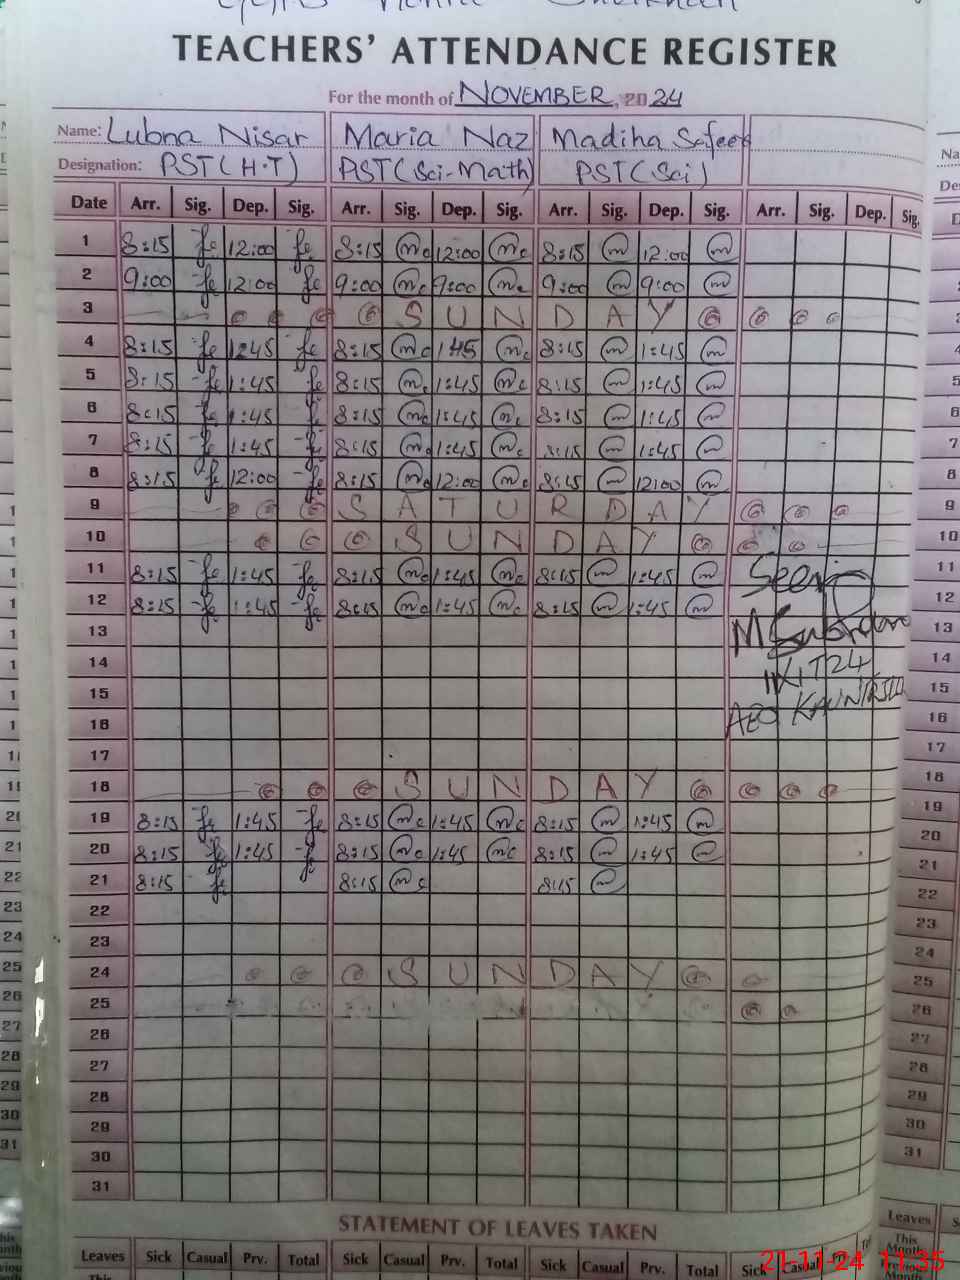 TEACHERS' ATTENDANCE REGISTER
For the month of NOVEMBER, 2024
Name: Lubna Nisar Maria Naz Madiha Safeer
Designation: PST (H.T) PST (Sci-Math) PST (Sci)
Date Arr. Sig. Dep. Sig. Arr. Sig. Dep. Sig. Arr. Sig. Dep. Sig. Arr. Sig. Dep. Sig.
1 8:15 12:00 8:15 12:00 8:15 12:00
2 9:00 12:00 9:00 9:00 9:00 9:00
3 SUNDAY
4 8:15 1:45 8:15 1:45 8:15 1:45
5 8:15 1:45 8:15 1:45 8:15 1:45
6 8:15 1:45 8:15 1:45 8:15 1:45
7 8:15 1:45 8:15 1:45 8:15 1:45
8 8:15 12:00 8:15 12:00 8:15 12:00
9 SATURDAY
10 SUNDAY
11 8:15 1:45 8:15 1:45 8:15 1:45 Seen
12 8:15 1:45 8:15 1:45 8:15 1:45
13
14
15
16 AEO
17
18 SUNDAY
19 8:15 1:45 8:15 1:45 8:15 1:45
20 8:15 1:45 8:15 1:45 8:15 1:45
21 8:15 8:15 8:15
22
23
24 SUNDAY
25
26
27
28
29
30
31
STATEMENT OF LEAVES TAKEN
Leaves Sick Casual Prv. Total Sick Casual Prv. Total Sick Casual Prv. Total Sick Casual
21-11-24 11:35